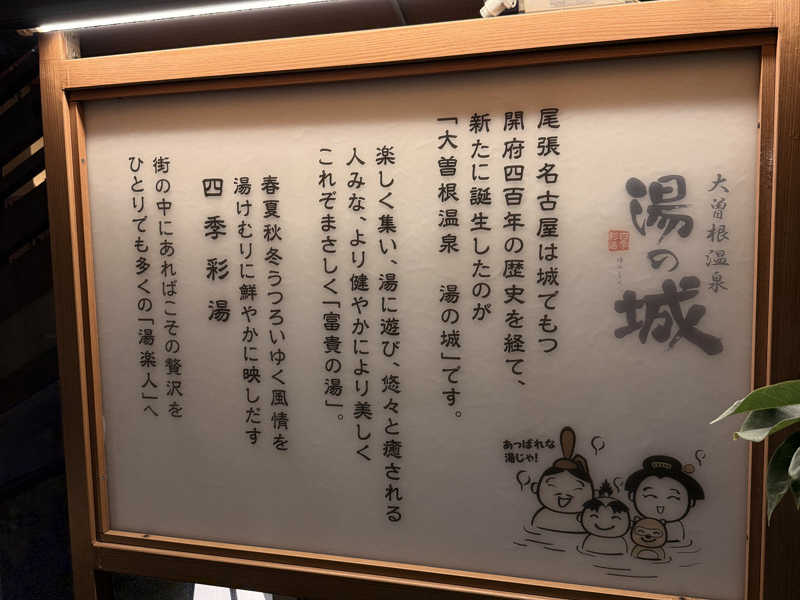 大曽根温泉
湯の城
尾張名古屋は城でもつ
開府四百年の歴史を経て、
新たに誕生したのが
「大曽根温泉 湯の城」です。
楽しく集い、湯に遊び、悠々と癒される
人みな、より健やかにより美しく
これぞまさしく「富貴の湯」。
春夏秋冬うつろいゆく風情を
湯けむりに鮮やかに映しだす
四季彩湯
街の中にあればこその贅沢を
ひとりでも多くの「湯楽人」へ
あっぱれな
湯じゃ!